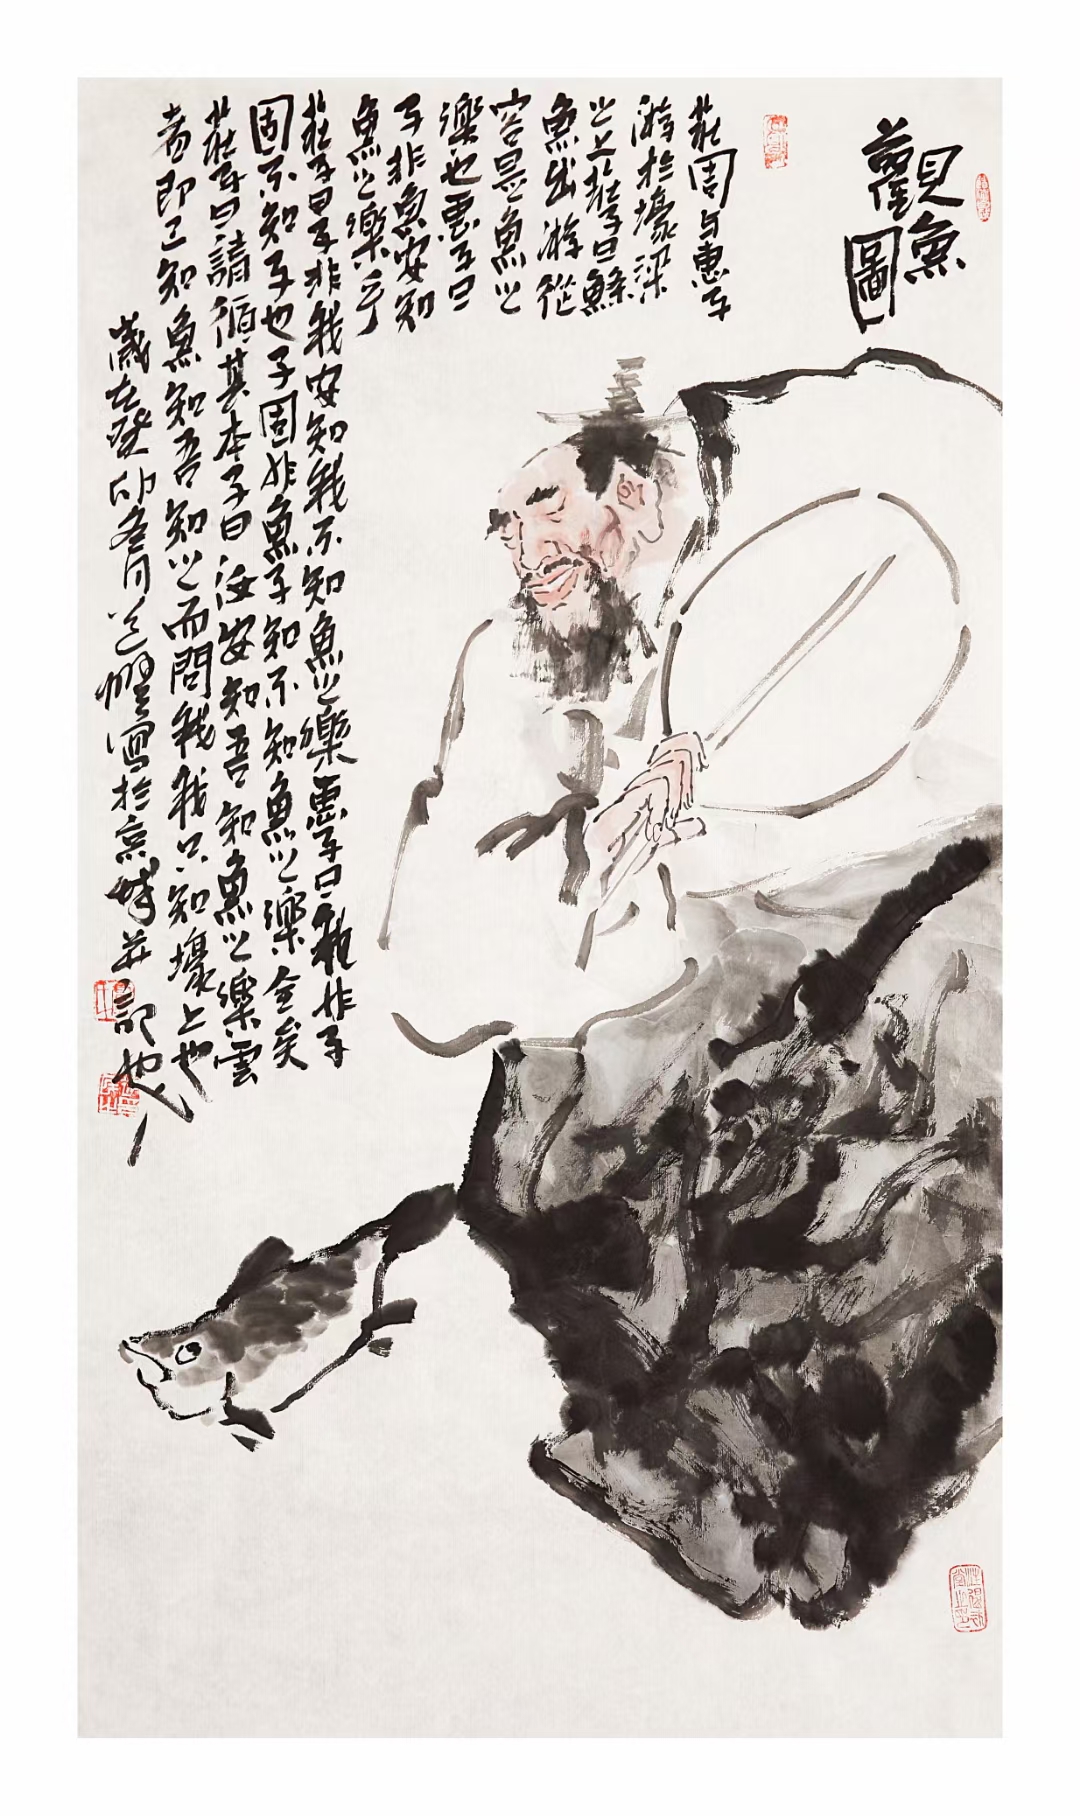 觀魚
圖
莊周与惠子
游於壕梁
之上莊子曰鯈
魚出游從
容是魚之
樂也惠子曰
子非魚安知
魚之樂乎
莊子曰子非我安知我不知魚之樂惠子曰我非子
固不知子也子固非魚子知不知魚之樂全矣
莊子曰請循其本子曰汝安知吾知魚之樂雲
者即已知魚知吾知之而問我我只知壕上也
歲在癸卯月寫於京城并記也